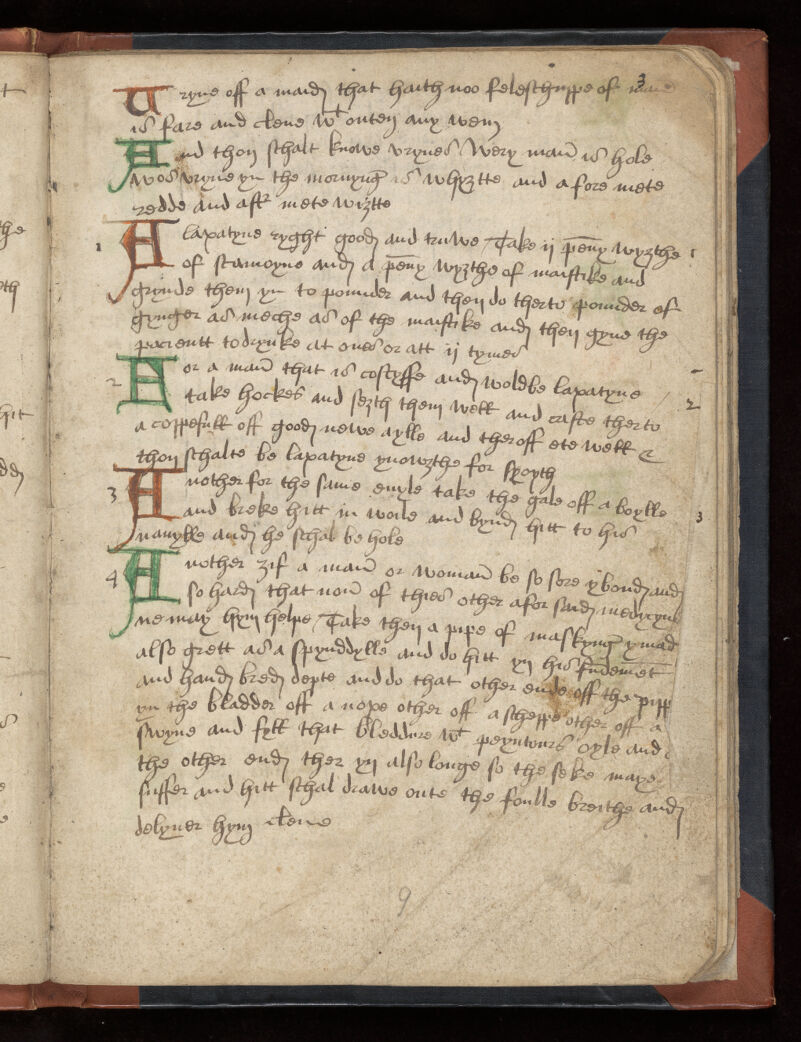 3
Uryne off a maidn that haith noo feleschuppe of man
is fare and clene wt outen any wem
And thou schalt knowe urynes Wery man is hole
wos uryne yn the mornyng is whyztte and a fore mete
redde and aftr mete wiztte
1 A laxatyne ryght good and truwe / Take ij peny wyzthe 1
of scamoyne and a peny wyzthe of mastike and
grynde them yn to pouuder and then do therto pouuder of
gynger as meche as of the mastike and then gyue the
pacientt to drynke at ones or att ij tymes
2 For a man that is costyffe and wold be laxatyue 2
take hockes and sezth them well and caste therto
a coppefull off good newe aylle and ther off ete well &
thou schalte be laxatyue ynowzthe for sooyth
3 Another for the same euyle take the gale off a boylle 3
and breke hitt in wolle and bynd hitt to his
nauylle and he schal be hole
4 Another zif a man or woman be so sore ybond and
so hard that non of thies other afor said medycyns
ne may hym helpe / Take then a pipe of maskyng ymad
also grett as a spynddylle and do hitt yn his fundemet
and hand bred depte and do that other ende off the pipp
yn the bladder off a nope other off a scheppe other off a
swyne and fyll that bleddure wt peyntours oyle and
the other end ther yn also longe so the seke maye
suffer and hitt schal drawe oute the foulle breithe and
delyuer hym clene
9